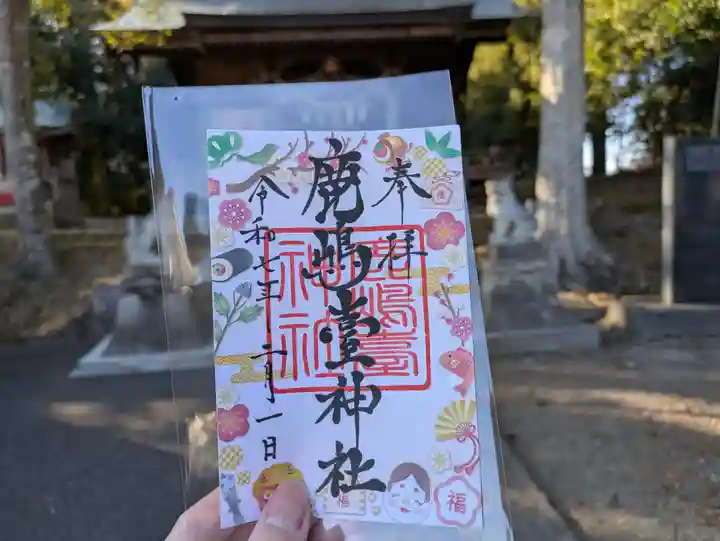 奉拝
鹿嶋臺神社
鹿嶋臺
神社
令和七年二月一日
福
福